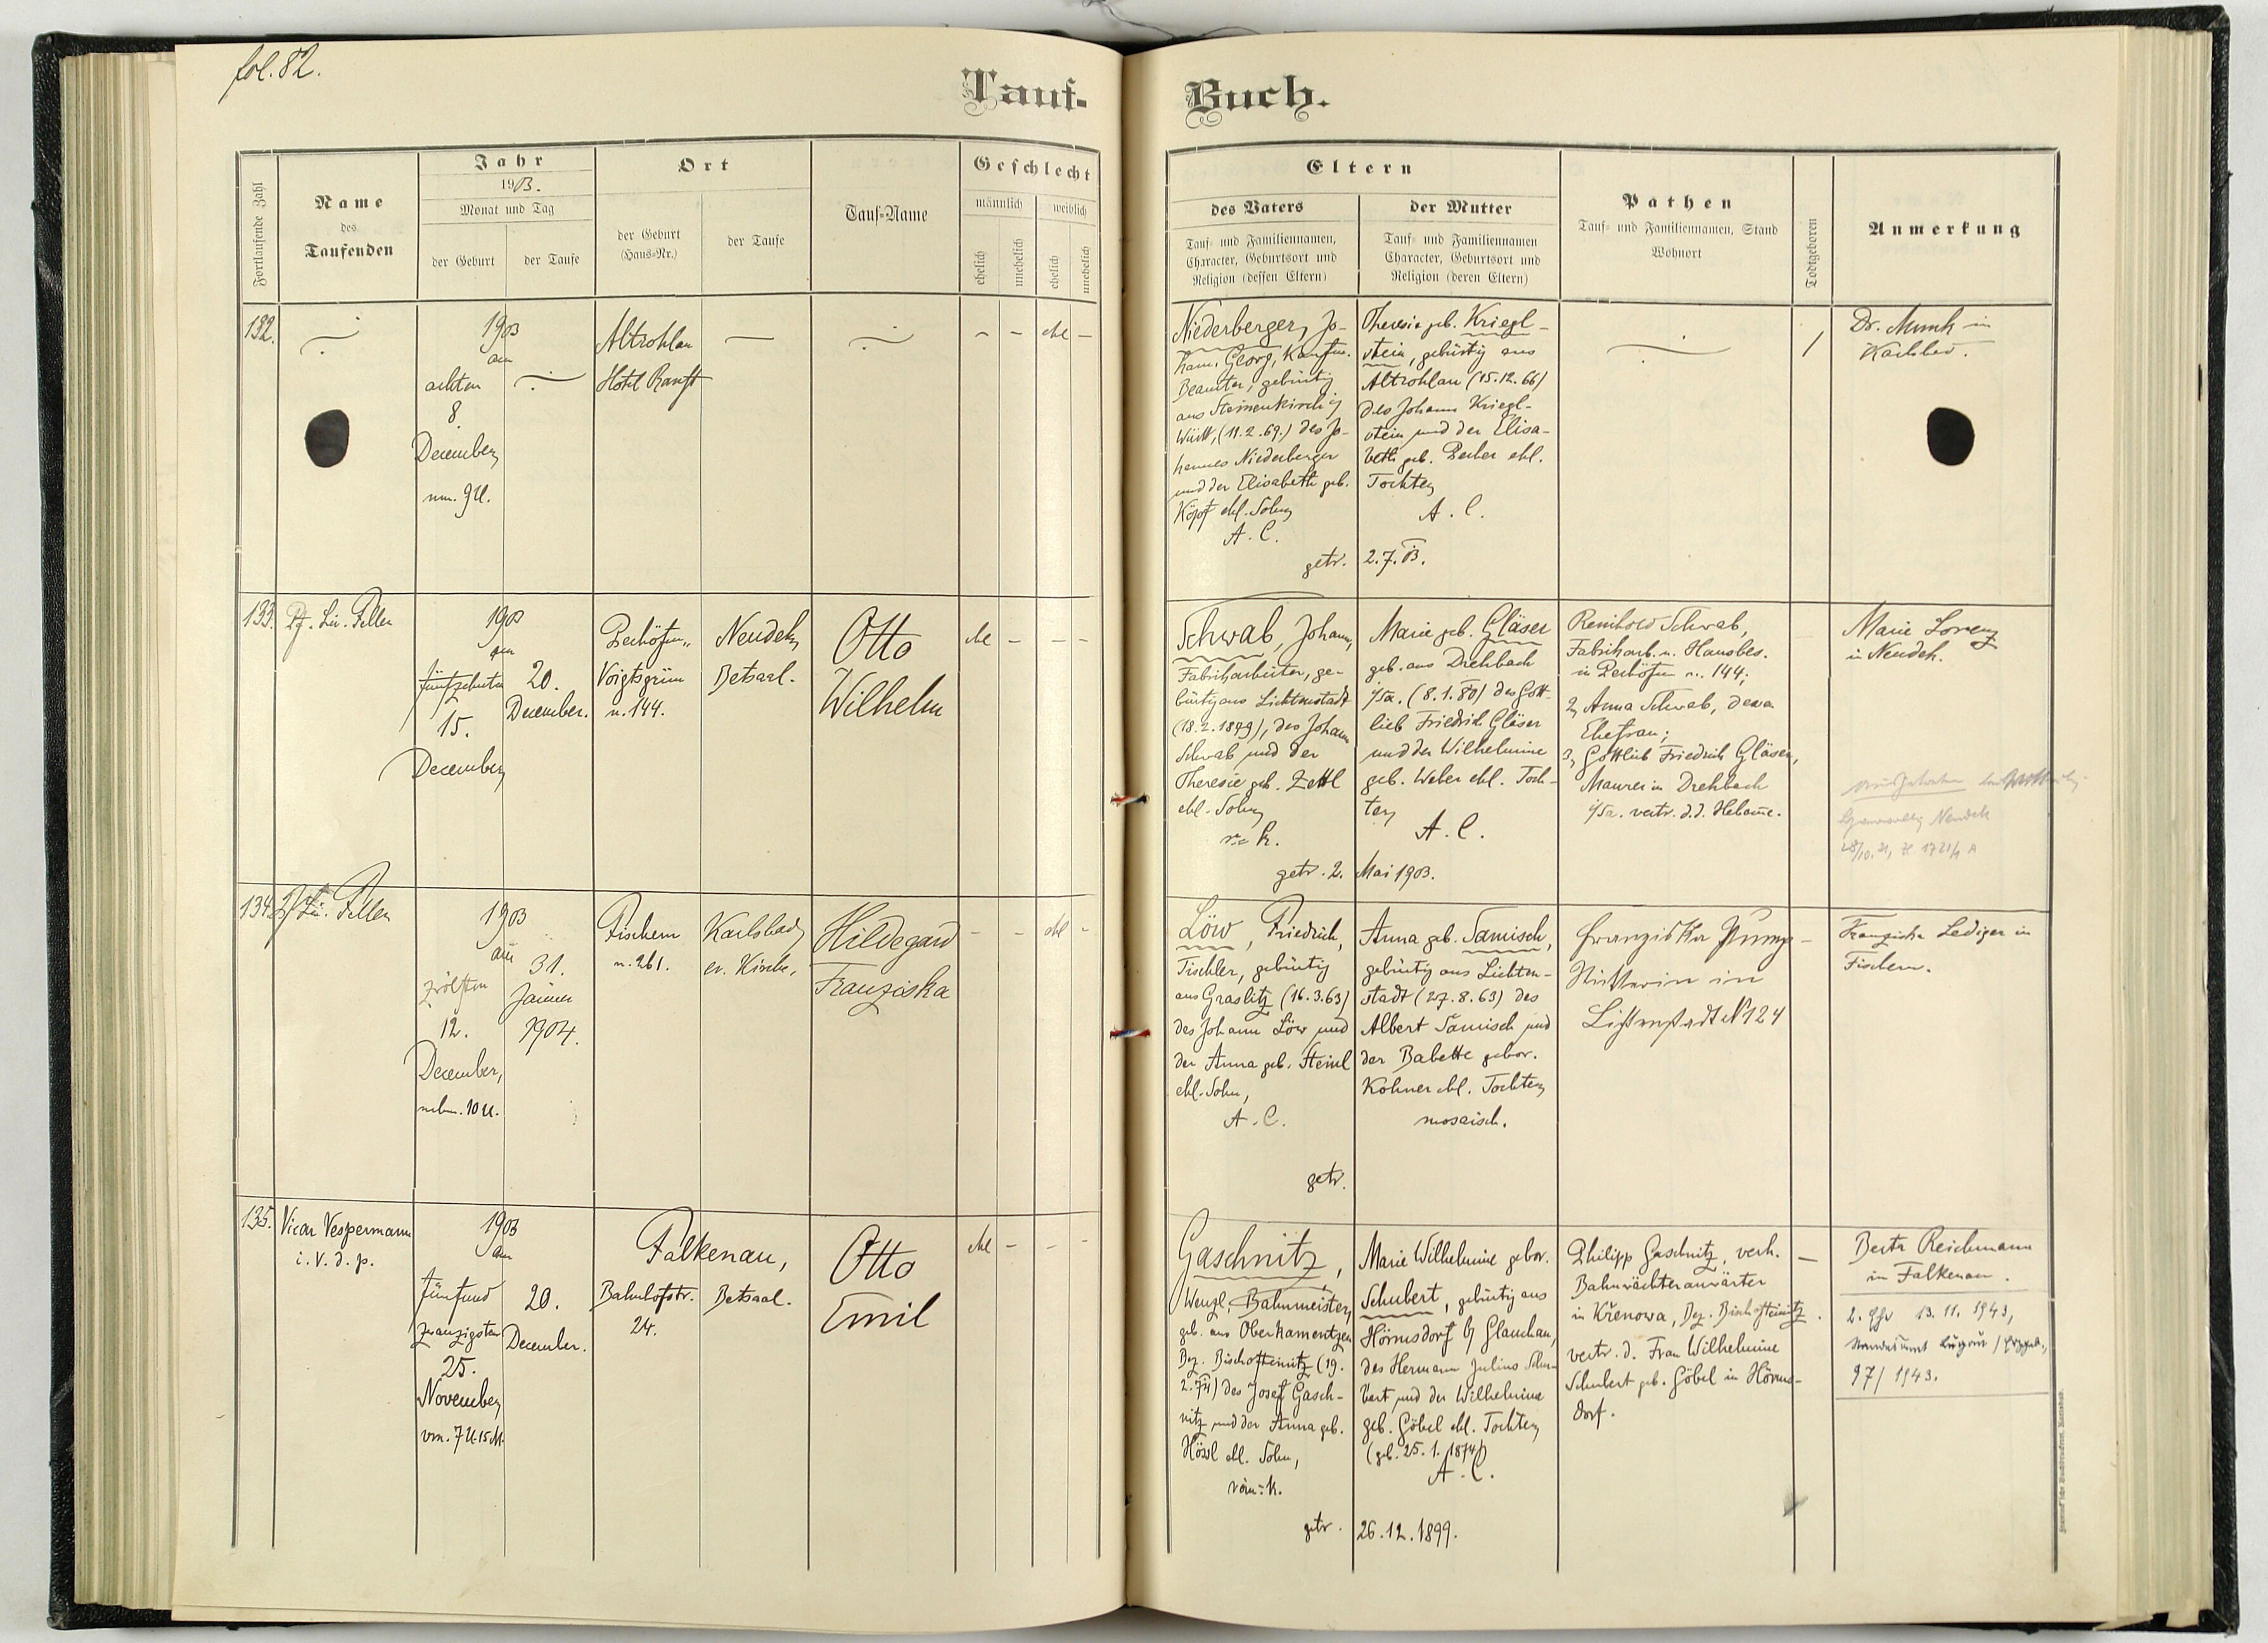 fol. 82.
Tauf-
Buch.
Fortlaufende Zahl
Name
des
Taufenden
Jahr
1903.
Monat und Tag
der Geburt
der Taufe
Ort
der Geburt
(Haus-Nr.)
der Taufe
Tauf-Name
Geschlecht
männlich
weiblich
ehelich
unehelich
ehelich
unehelich
Eltern
des Vaters
Tauf- und Familiennamen,
Character, Geburtsort und
Religion (dessen Eltern)
der Mutter
Tauf- und Familiennamen
Character, Geburtsort und
Religion (deren Eltern)
Pathen
Tauf- und Familiennamen, Stand
Wohnort
Todtgeboren
Anmerkung
132.
1903
am
achten
8.
December
nm. 9 U.
Altrohlau
Hotel Ranft
ehl
Niederberger, Jo-
hann, Georg, Kaufm.
Beamter, gebürtig
aus Steinenkirch i/
Württ, (11.2.69.) des Jo-
hannes Niederberger
und der Elisabeth geb.
Köpf ehl. Sohn
A. C.
Theresie geb. Kriegl-
stein, gebürtig aus
Altrohlau (15.12.66)
des Johann Kriegl-
stein und der Elisa-
beth geb. Becher ehl.
Tochter
A. C.
getr. 2.7.03.
/
Dr. Munk in
Karlsbad.
133.
Pf. Lic. Feller
1903
am
fünfzehnten
15.
December
20.
December.
Voigtsgrün
n. 144.
Neudek
Betsaal.
Otto
Wilhelm
ehl
Schwab, Johann,
Fabrikarbeiter, ge-
bürtig aus Lichtenstadt
(18.2.1879), des Johann
Schwab und der
Theresie geb. Zettl
ehl. Sohn
r. k.
Marie geb. Gläser
geb. aus Drehbach
i/Sa. (8.1.80) des Gott-
lieb Friedrich Gläser
und der Wilhelmine
geb. Weber ehl. Toch-
ter
A. C.
getr. 2. Mai 1903.
Reinhold Schwab,
Fabrikarb. u. Hausbes.
in n. 144;
2, Anna Schwab, dessen
Ehefrau;
3, Gottlieb Friedrich Gläser,
Maurer in Drehbach
i/Sa. vertr. d. d. Hebamme.
Marie Lorenz
in Neudek.
Neudek
134.
Pf. Lic. Feller
1903
am
zwölften
12.
December,
nchm. 10 U.
31.
Jänner
1904.
Fischern
n. 261.
Karlsbad
ev. Kirche,
Hildegard
Franziska
ehl
Löw, Friedrich,
Tischler, gebürtig
aus Graslitz (16.3.63)
des Johann Löw und
der Anna geb. Steinl
ehl. Sohn,
A. C.
Anna geb. Samisch,
gebürtig aus Lichten-
stadt (27.8.63) des
Albert Samisch und
der Babette gebor.
Kohner ehl. Tochter
mosaisch.
getr.
Franziska
in
Lichtenstadt N 124
Franziska Lediger in
Fischern.
135.
Vicar Vespermann
i. V. d. p.
1903
am
fünfund
zwanzigsten
25.
November
vm. 7 U. 15 M.
20.
December.
Falkenau,
Bahnhofstr.
24.
Betsaal.
Otto
Emil
ehl
Gaschnitz,
Wenzl, Bahnmeister,
geb. aus Oberkamentzen
Bez. Bischofteinitz (19.
2.74) des Josef Gasch-
nitz und der Anna geb.
Hössl ehl. Sohn,
röm. k.
Marie Wilhelmine gebor.
Schubert, gebürtig aus
Hörnsdorf b/ Glauchau,
des Hermann Julius Schu-
bert und der Wilhelmine
geb. Göbel ehl. Tochter
(geb. 25.1.1874)
A. C.
getr. 26.12.1899.
Philipp Gaschnitz, verh.
Bahnwächteranwärter
in Křenowa, Bez. Bischofteinitz.
vertr. d. Frau Wilhelmine
Schubert geb. Göbel in Hörns-
dorf.
Berta Reichmann
in Falkenau.
2. Ehe 13.11.1943,
Standesamt
97/1943.